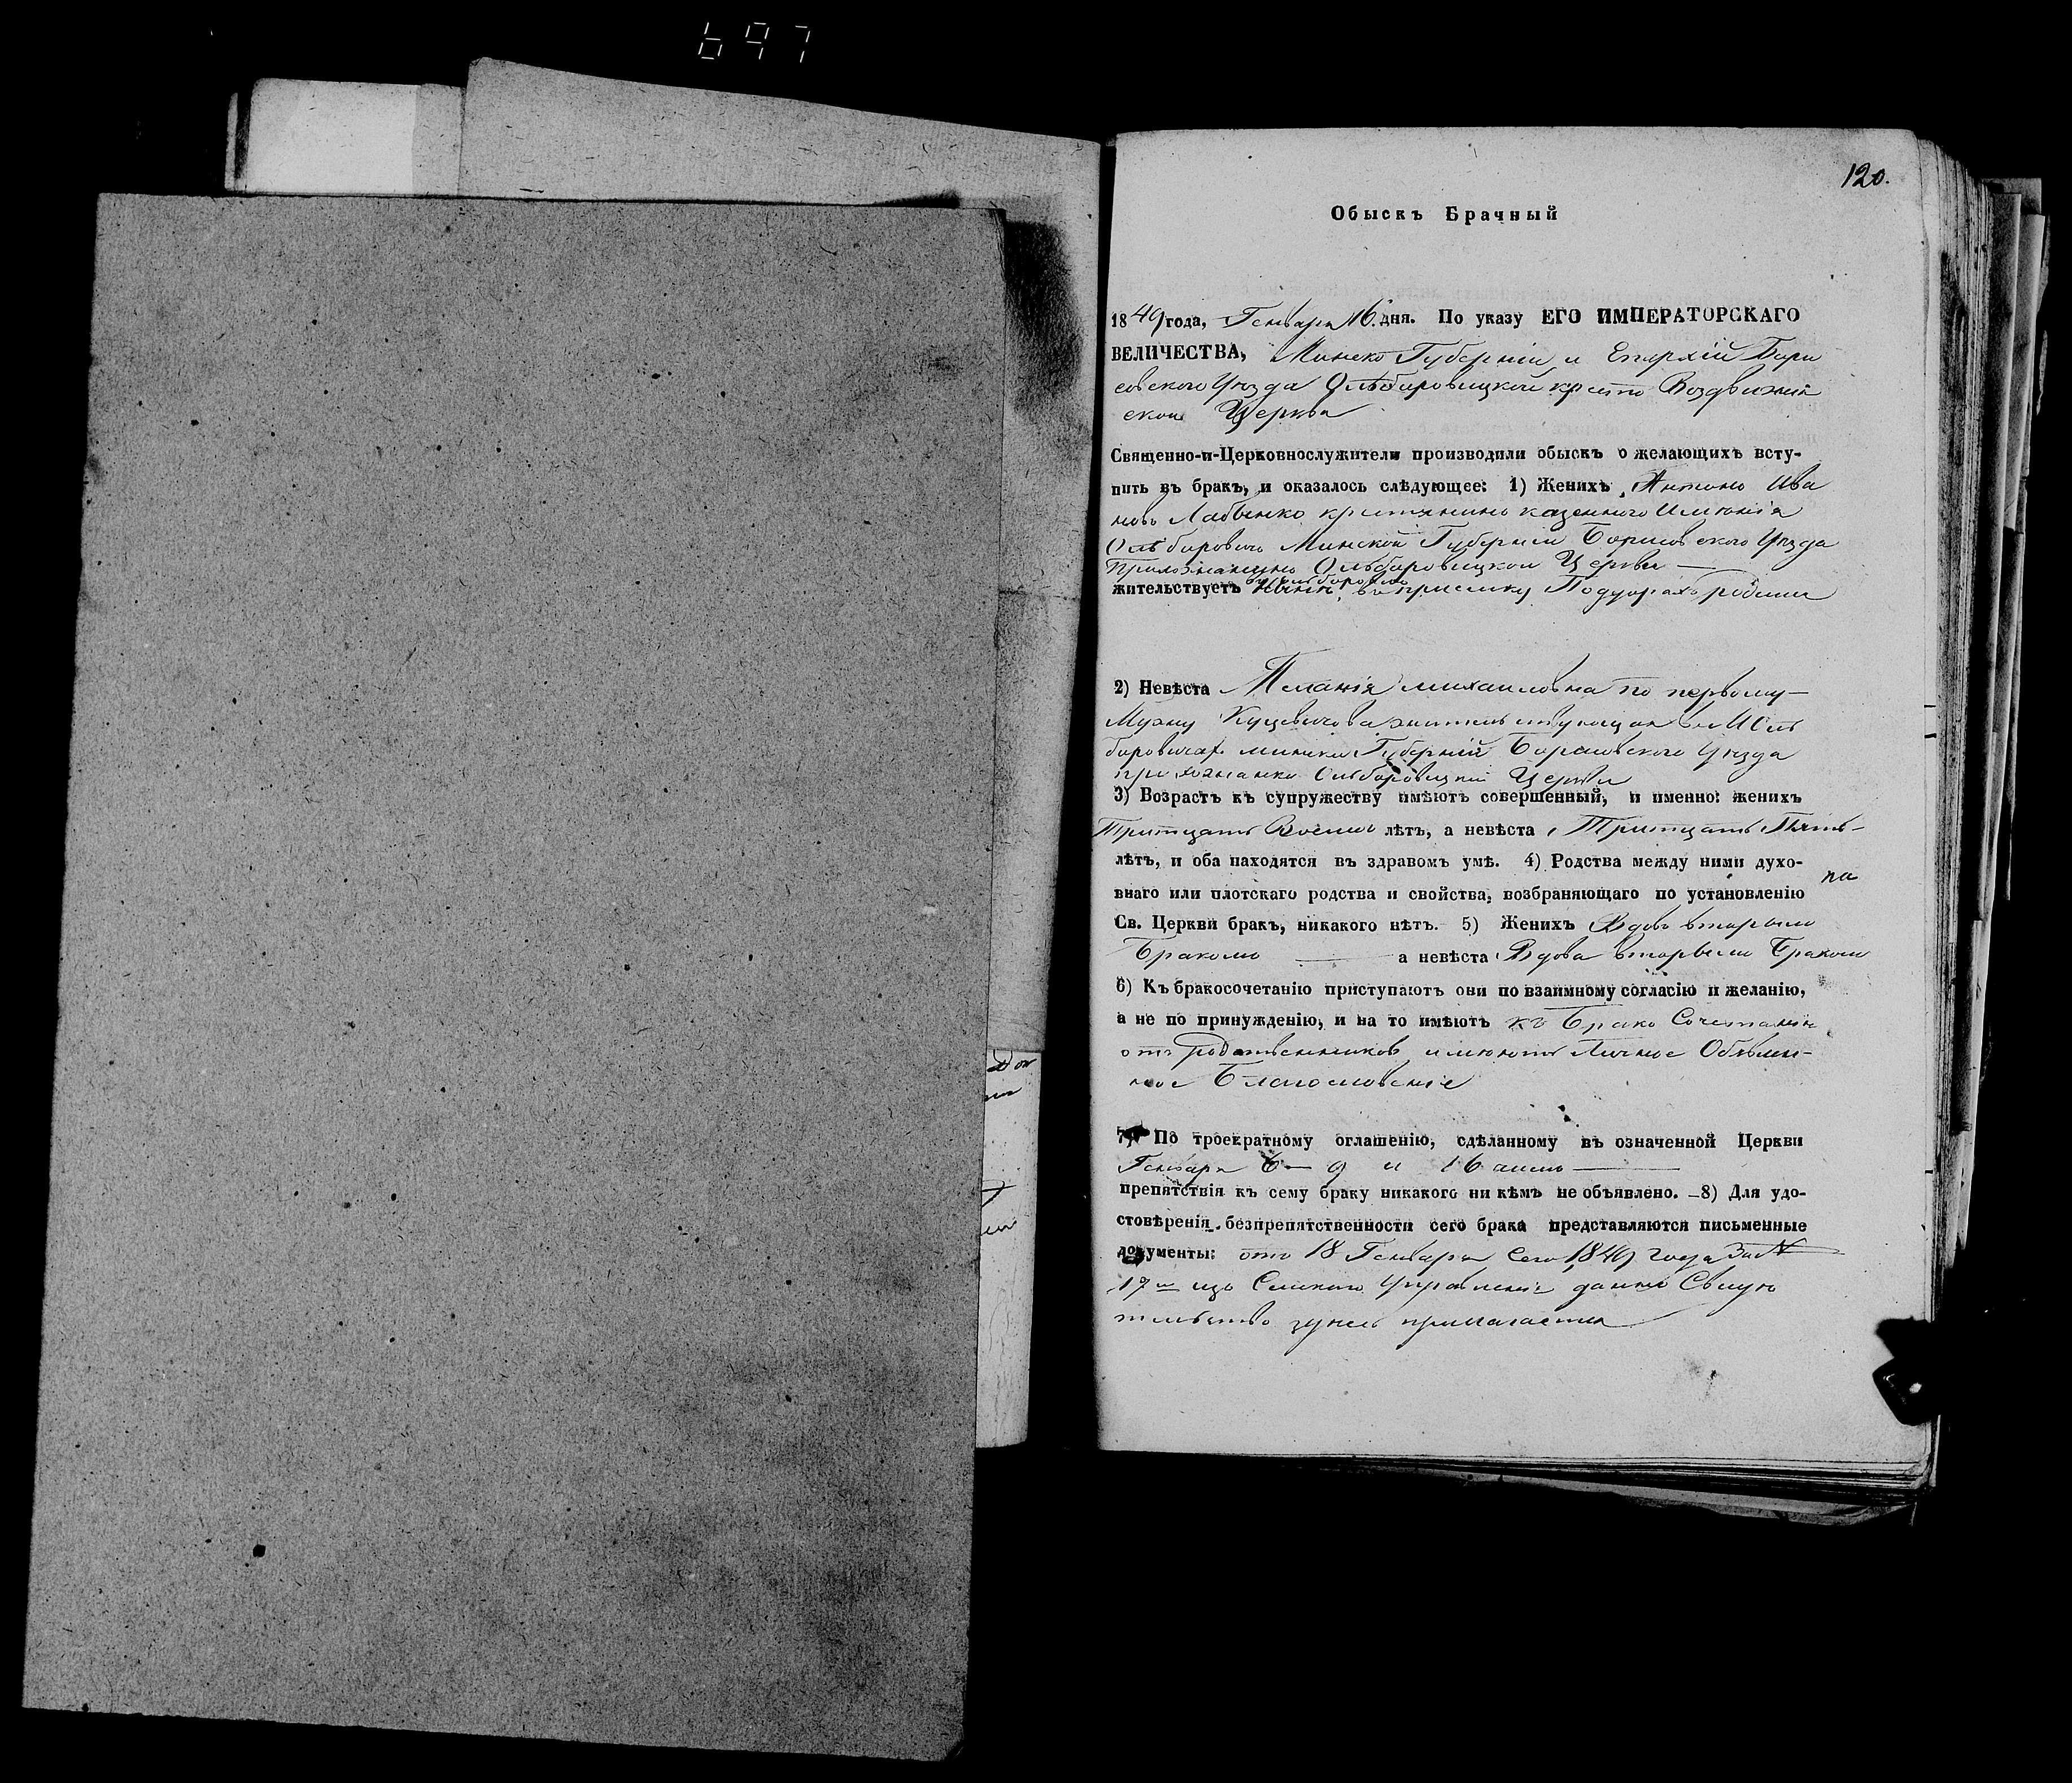 697
120.
Обыскъ Брачный
1849 года, Генваря 16 дня. По указу ЕГО ИМПЕРАТОРСКАГО
ВЕЛИЧЕСТВА, Минско Губерніи и Епархіи Бори
совского Уезда Ольбаровицкой кресто Воздвижен
ской Церкви
Священно-и-Церковнослужители производили обыскъ о желающихъ всту-
пить въ бракъ, и оказалось слѣдующее: 1) Женихъ Антонъ Ива
новъ крестянинъ казенного Именія
Минской Губерніи Борисовского Уезда
Ольборовицкой Церкви
жительствуетъ
2) Невѣста Меланія Михаиловна по первому
Мужу жительствующая
Минской Губерніи Борисовского Уезда
прихожанка Церкви
3) Возрастъ къ супружеству имѣютъ совершенный, и именно: женихъ
Тритцать Восемь лѣтъ, а невѣста Тритцать Пять
лѣтъ, и оба находятся въ здравомъ умѣ. 4) Родства между ними духо-
внаго или плотскаго родства и свойства, возбраняющаго по установленію
Св. Церкви бракъ, никакого нѣтъ. 5) Женихъ Вдовъ вторымъ
Бракомъ а невѣста Вдова вторымъ Бракомъ
6) Къ бракосочетанію приступаютъ они по взаимному согласію и желанію,
а не по принужденію, и на то имѣютъ къ Брако Сочетанію
отъ родственниковъ имеютъ Личное Обявлен-
ное Благословеніе
7) По троекратному оглашенію, сдѣланному въ означенной Церкви
Генваря 6 – 9 и 16
препятствія къ сему браку никакого ни кѣмъ не объявлено. 8) Для удо-
стовѣренія безпрепятственности сего брака представляются письменные
документы: отъ 18 Генваря Сего 1849 года За №
17 изъ Управленія данно Свиде
тельство здесь прилагается